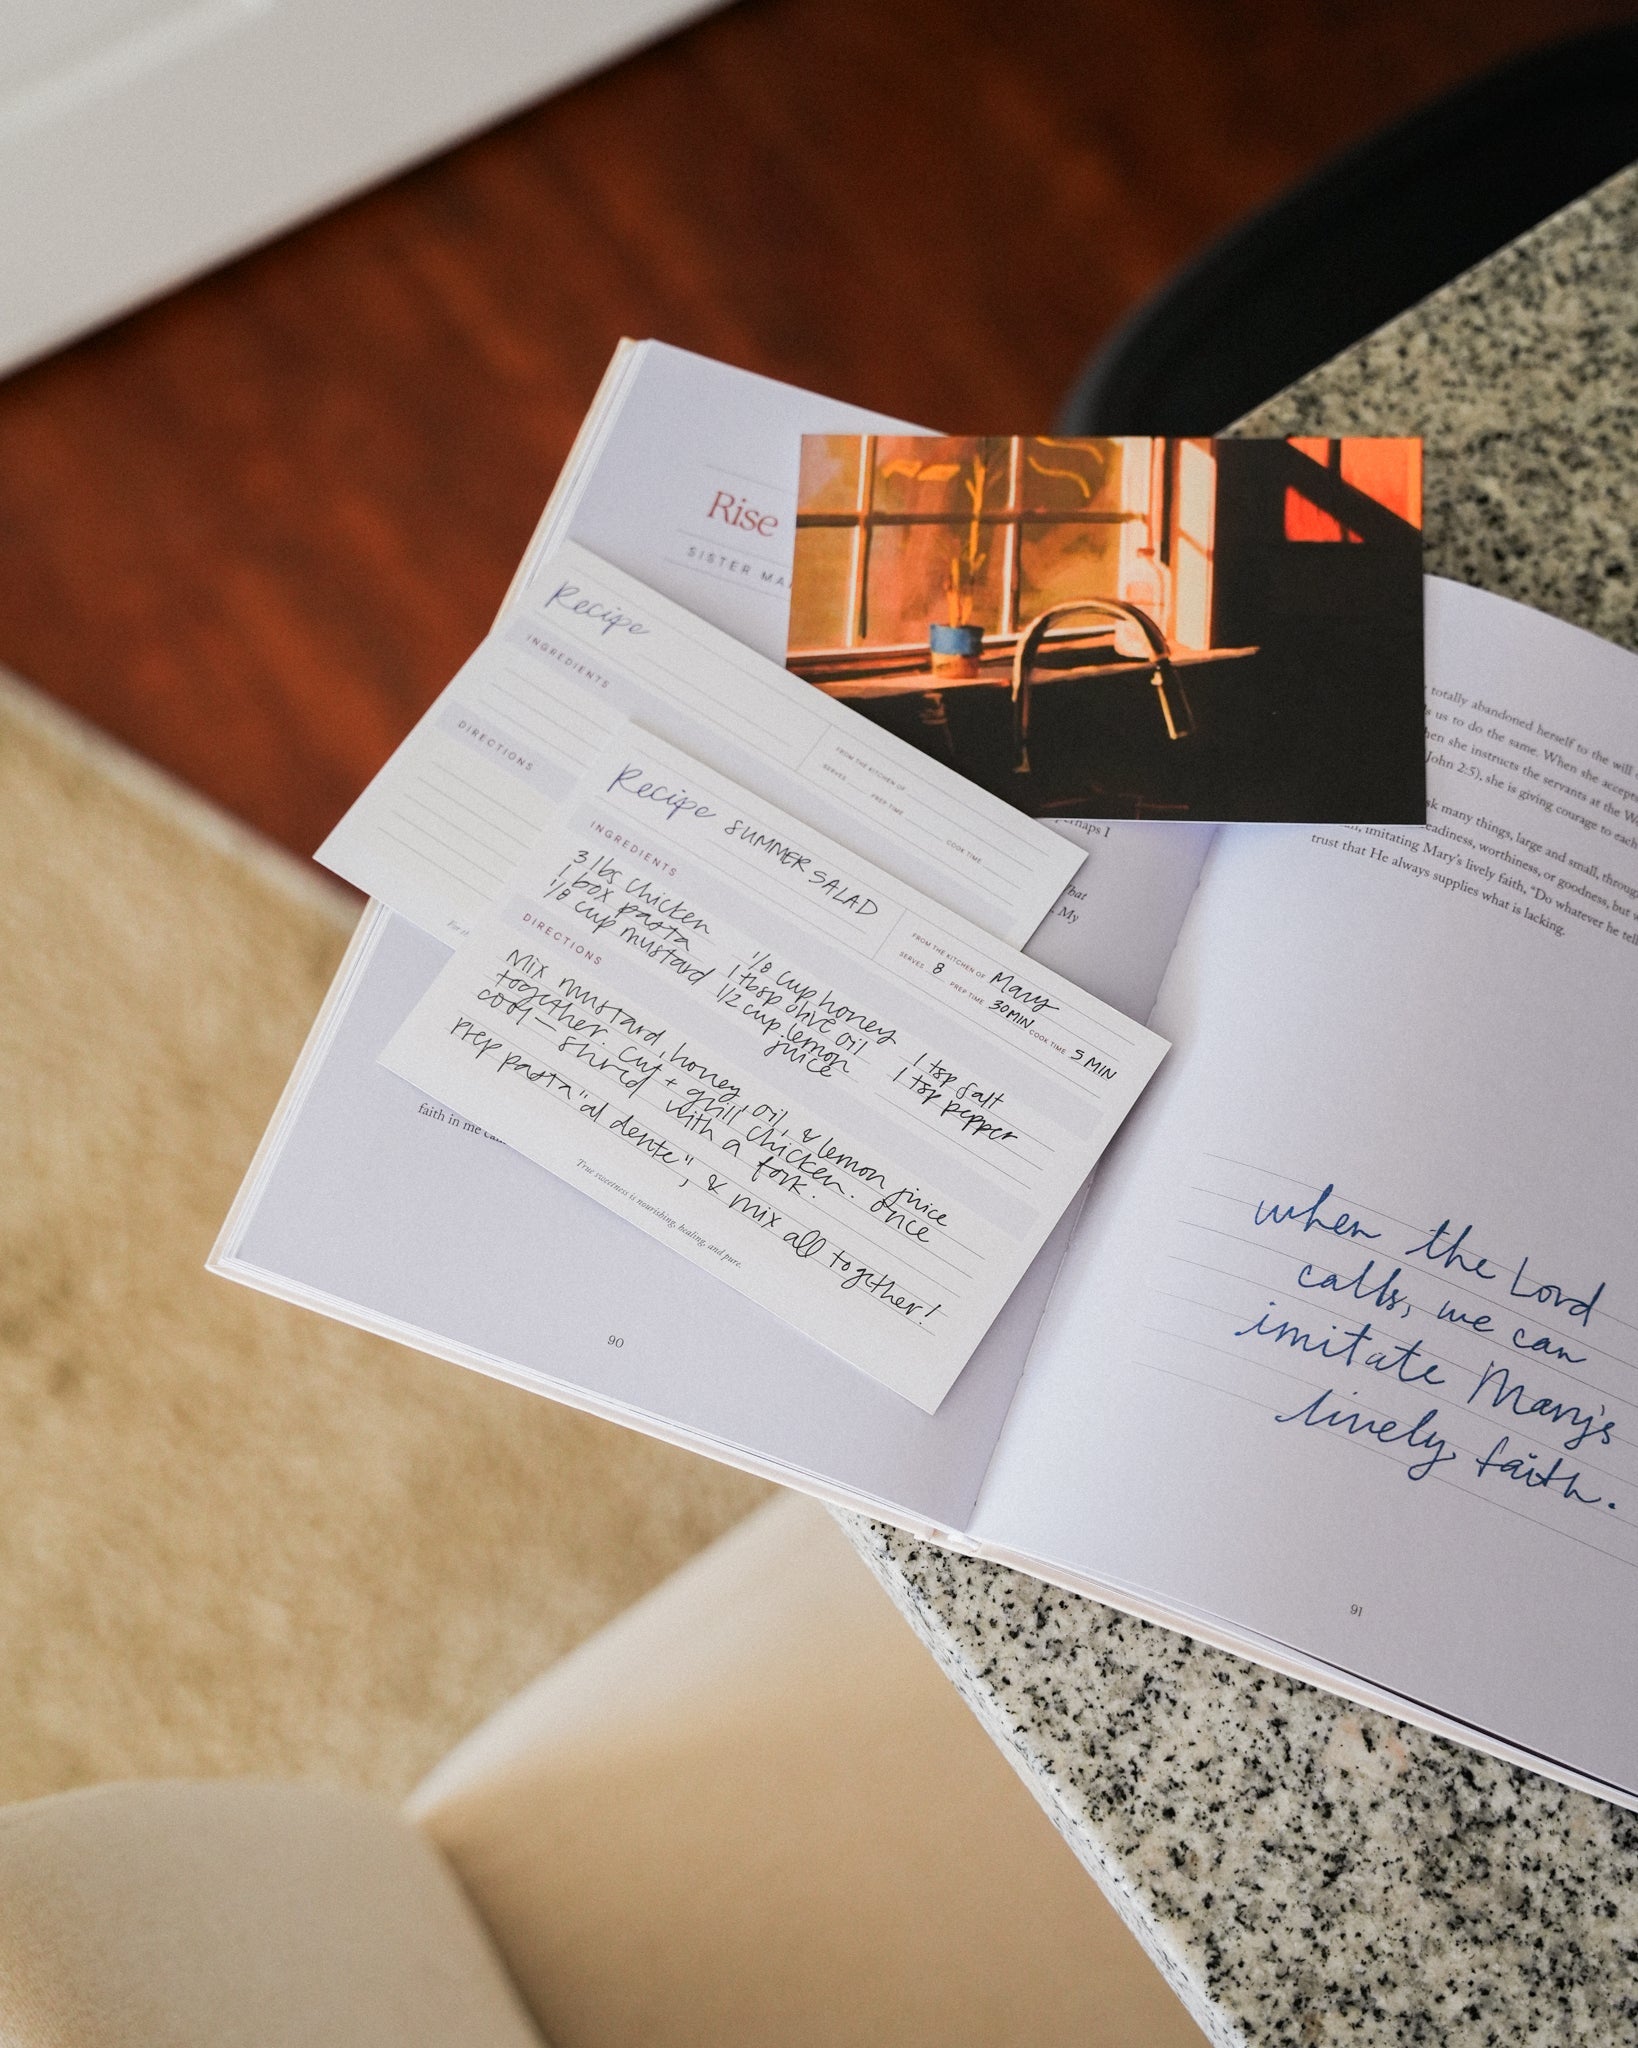 Rise
SISTER MA
Recipe
INGREDIENTS
DIRECTIONS
FROM THE KITCHEN OF
SERVES
PREP TIME
COOK TIME
Recipe SUMMER SALAD
FROM THE KITCHEN OF Mary
SERVES 8 PREP TIME 30 MIN COOK TIME 5 MIN
INGREDIENTS
3 lbs chicken
1 box pasta
1/8 cup mustard
1/8 cup honey
1 tbsp olive oil
1/2 cup lemon
juice
1 tsp salt
1 tsp pepper
DIRECTIONS
Mix mustard, honey, oil, & lemon juice
together. Cut + grill chicken. Once
cool — shred with a fork.
Prep pasta "al dente", & mix all together!
True sweetness is nourishing, healing, and pure.
For th
erhaps I
hat
My
faith in me
90
totally abandoned herself to the will
s us to do the same. When she accepts
hen she instructs the servants at the We
John 2:5), she is giving courage to each
sk many things, large and small, throug
eadiness, worthiness, or goodness, but w
, imitating Mary's lively faith, "Do whatever he tell
trust that He always supplies what is lacking.
when the Lord
calls, we can
imitate Mary's
lively faith.
91